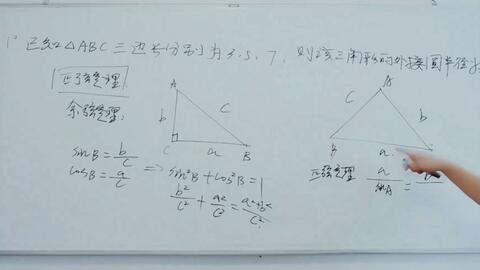 1° 已知△ABC三边长分别为3.5.7, 则该三角形的外接圆半径
正弦定理
余弦定理:
A
b
c
C
a
B
sinB=b/c
cosB=a/c
⇒ sin²B+cos²B=1
b²/c²+a²/c²=a²+b²/c²
A
c
b
B
a
正弦定理 a/sinA=b